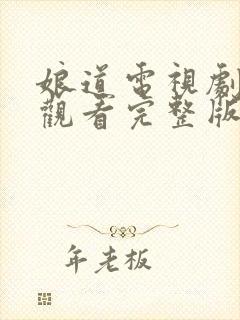 娘道電視劇
觀看完整版
年老板